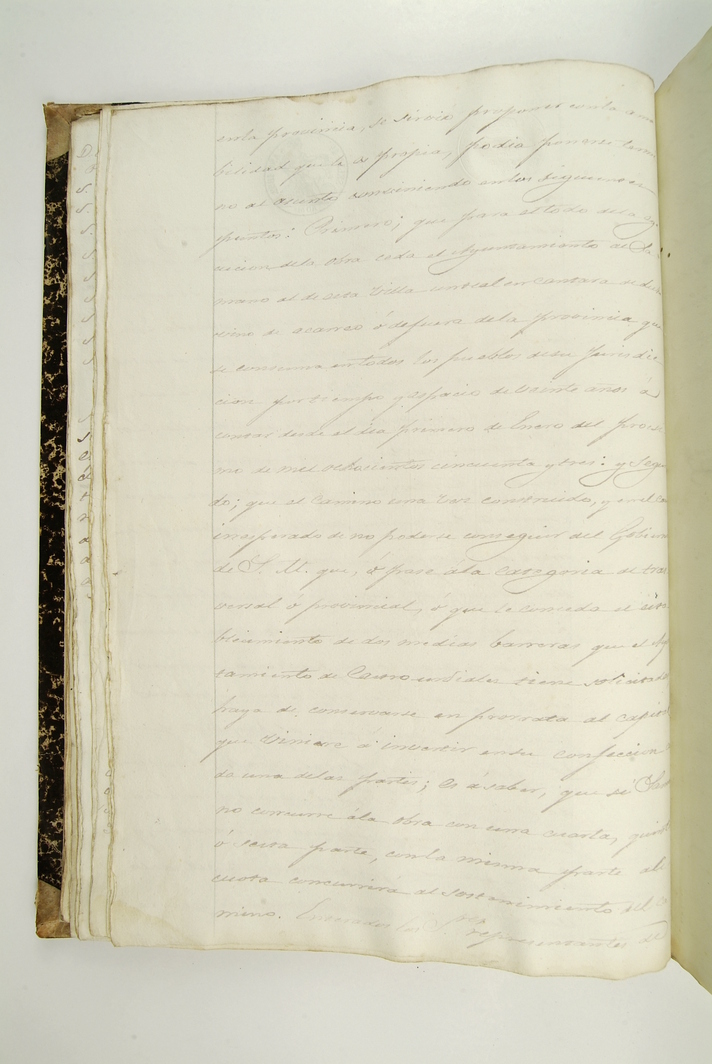 en la provincia, se sirvió proponer con la ama
bilidad que le es propia, podia ponerse termi
no al asunto conviniendo en los siguientes
puntos: Primero; que para el todo de la eje
cucion de la obra ceda el Ayuntamiento de Sa
mano al de esta Villa un real en cantara de
vino de acarreo ó de fuera de la provincia que
se consuma en todos los pueblos de su Jurisdic
cion por tiempo y espacio de veinte años á
contar desde el dia primero de Enero del procsi
mo de mil ochocientos cincuenta y tres: y Segun
do; que el Camino una vez construido, y en el caso
inesperado de no poderse conseguir del Gobierno
de S. M. que, ó pase á la categoria de tras
versal ó provincial, ó que se conceda el esta
blecimiento de dos medias barreras que el Ayun
tamiento de Castro urdiales tiene solicitado
haya de conservarse en prorrata al capital
que viniere á invertir en su confeccion
da una de las partes; Es á saber, que si Sama
no concurre á la obra con una cuarta, quinta
ó sesta parte, con la misma parte al
cuota concurrirá al sostenimiento del Ca
mino. Enterados los S.res representantes de